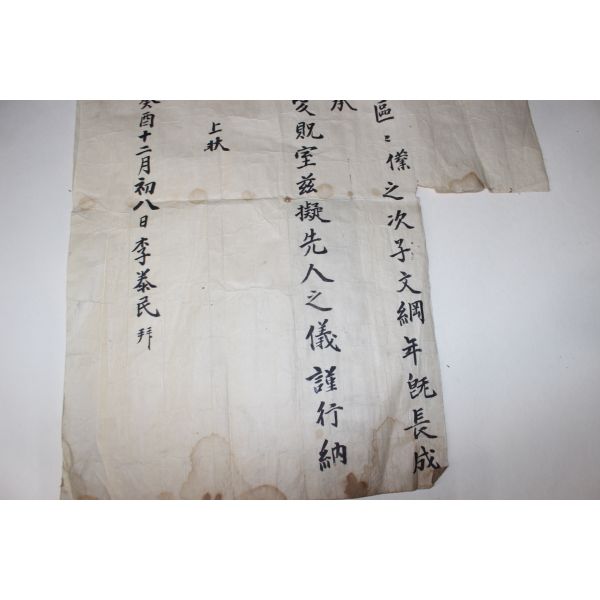 區〻僕之次子文綱年旣長成
承
貺室玆擬先人之儀謹行納
上狀
癸酉十二月初八日李泰民 拜